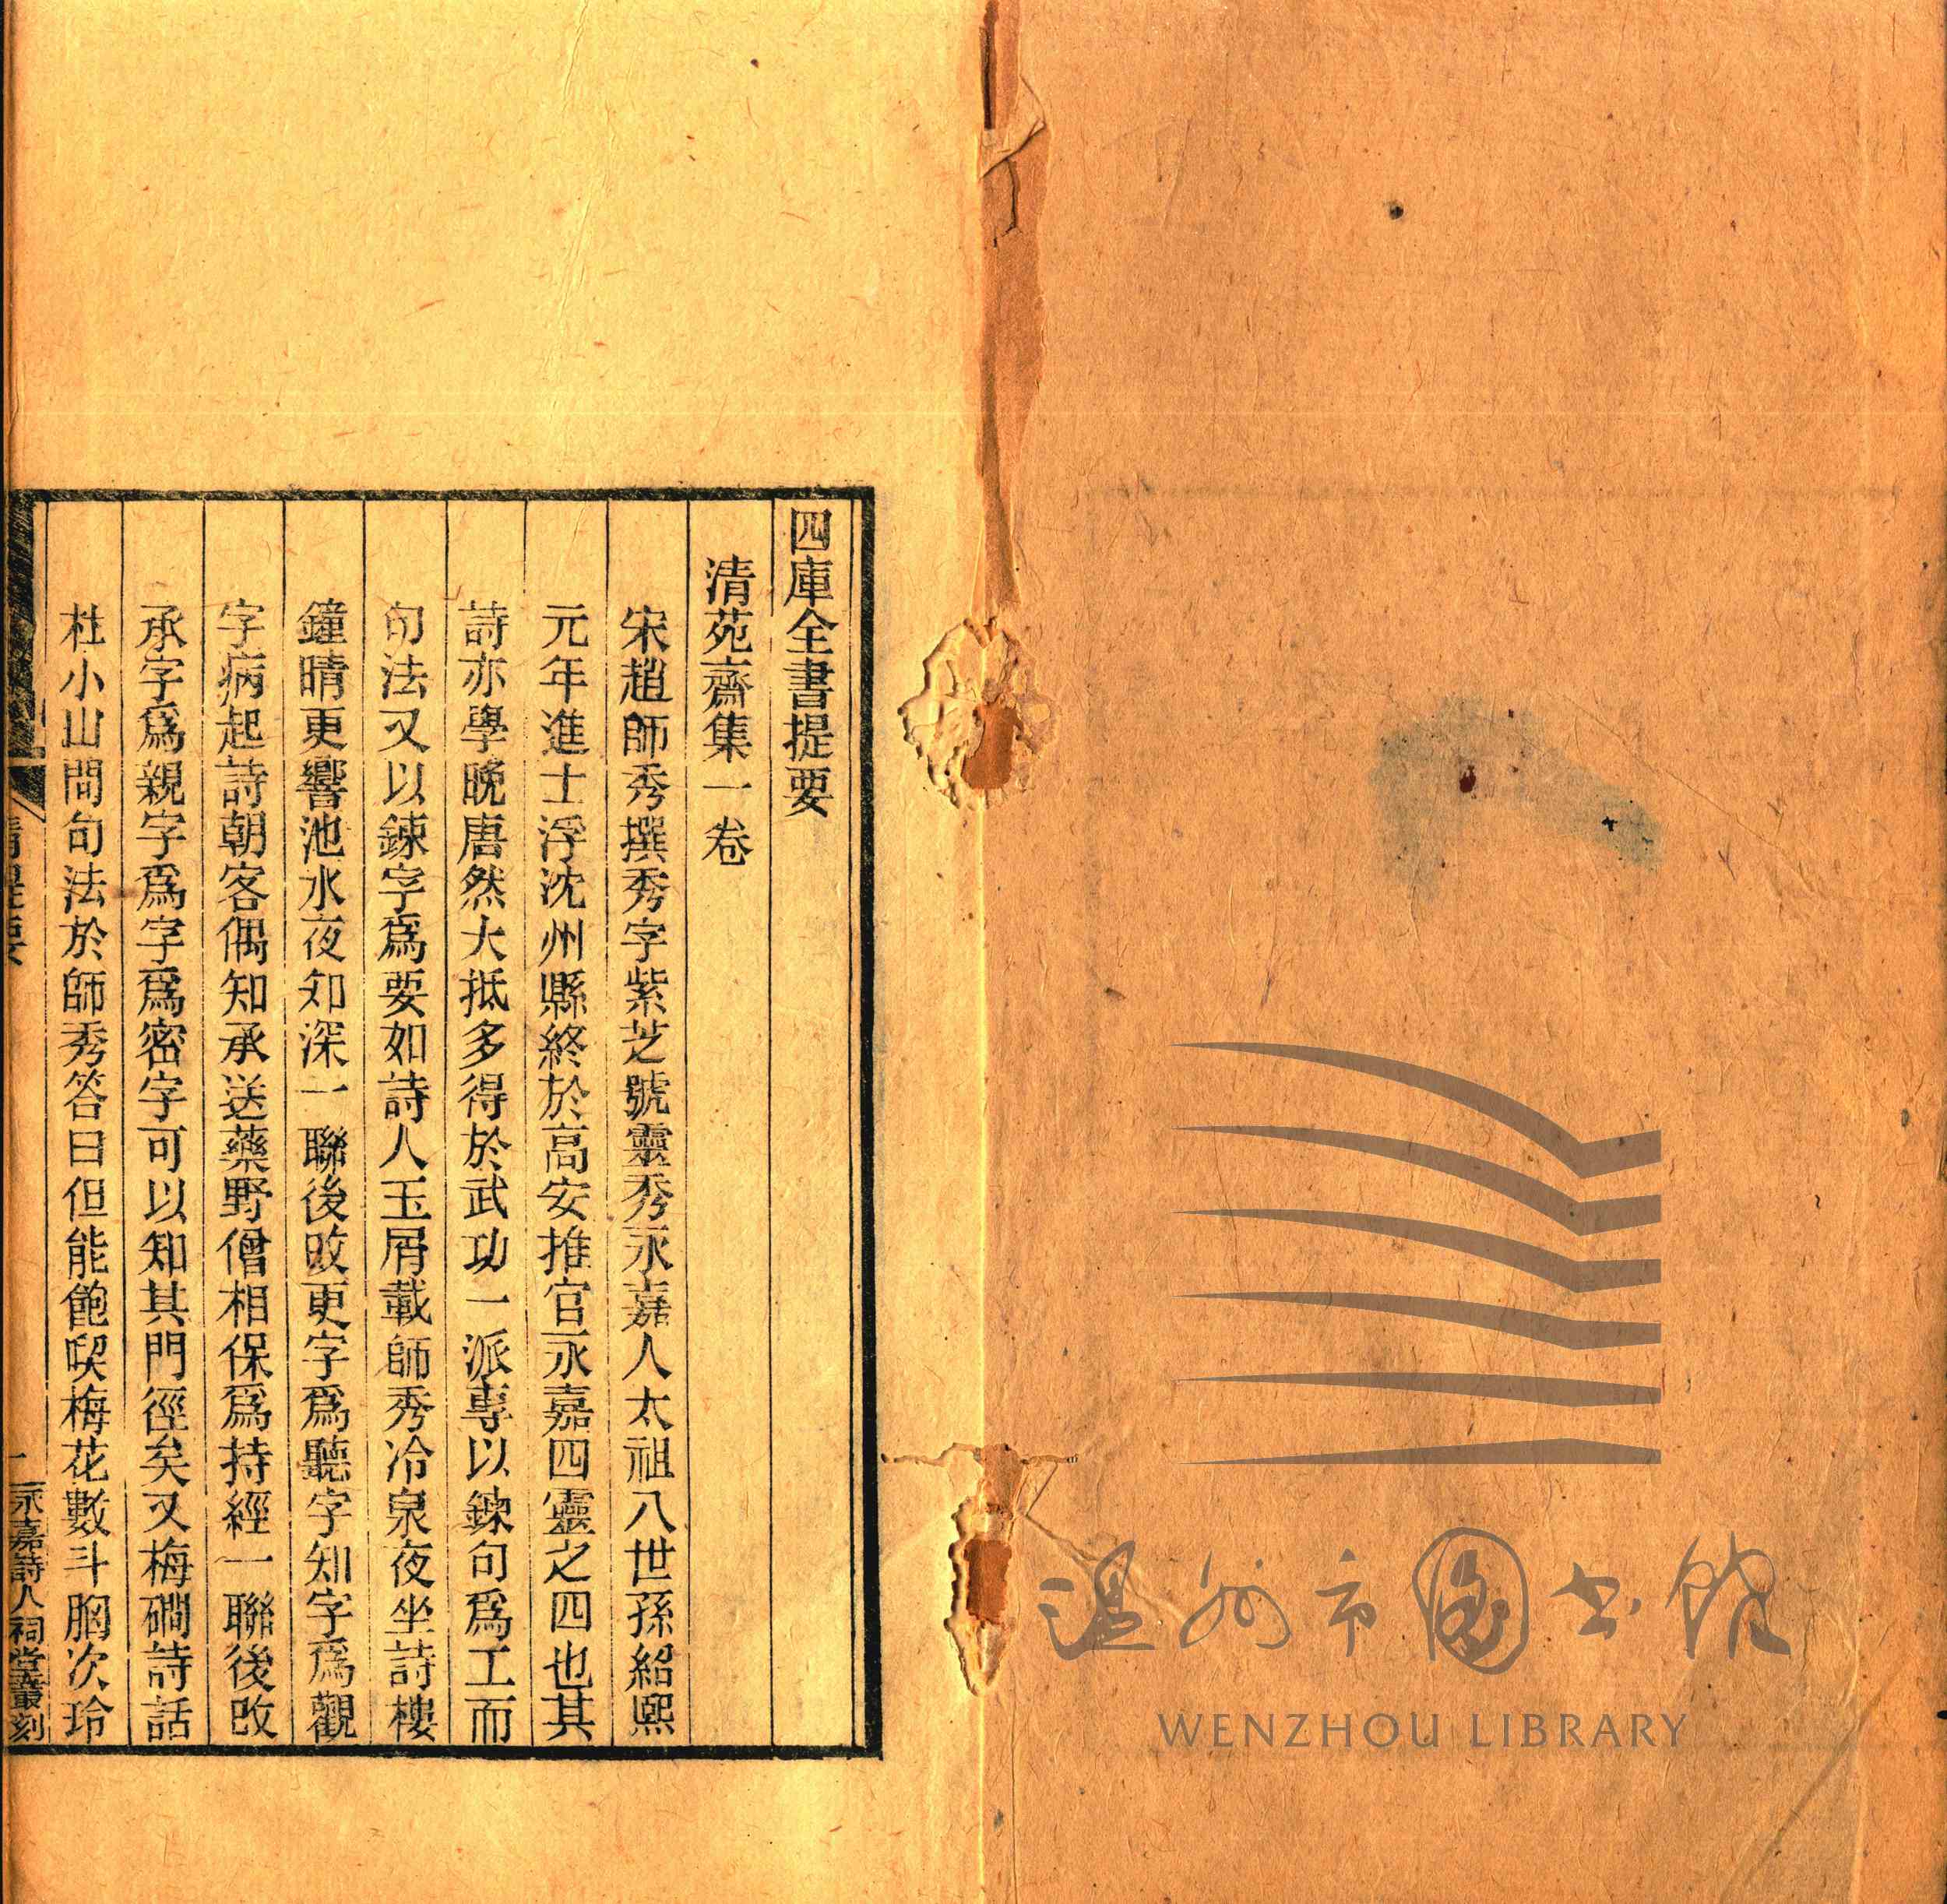 四庫全書提要
清苑齋集一卷
宋趙師秀撰秀字紫芝號靈秀永嘉人太祖八世孫紹熙
元年進士浮沈州縣終於高安推官永嘉四靈之四也其
詩亦學晚唐然大抵多得於武功一派專以鍊句爲工而
句法又以鍊字爲要如詩人玉屑載師秀冷泉夜坐詩樓
鐘晴更響池水夜如深一聯後改更字爲聽字知字爲觀
字病起詩朝客偶知承送藥野僧相保爲持經一聯後改
承字爲親字爲字爲密字可以知其門徑矣又梅磵詩話
杜小山問句法於師秀答曰但能飽喫梅花數斗胸次玲
清 提要
一
永嘉詩人祠堂叢刻
温州市图书馆
WENZHOU LIBRARY